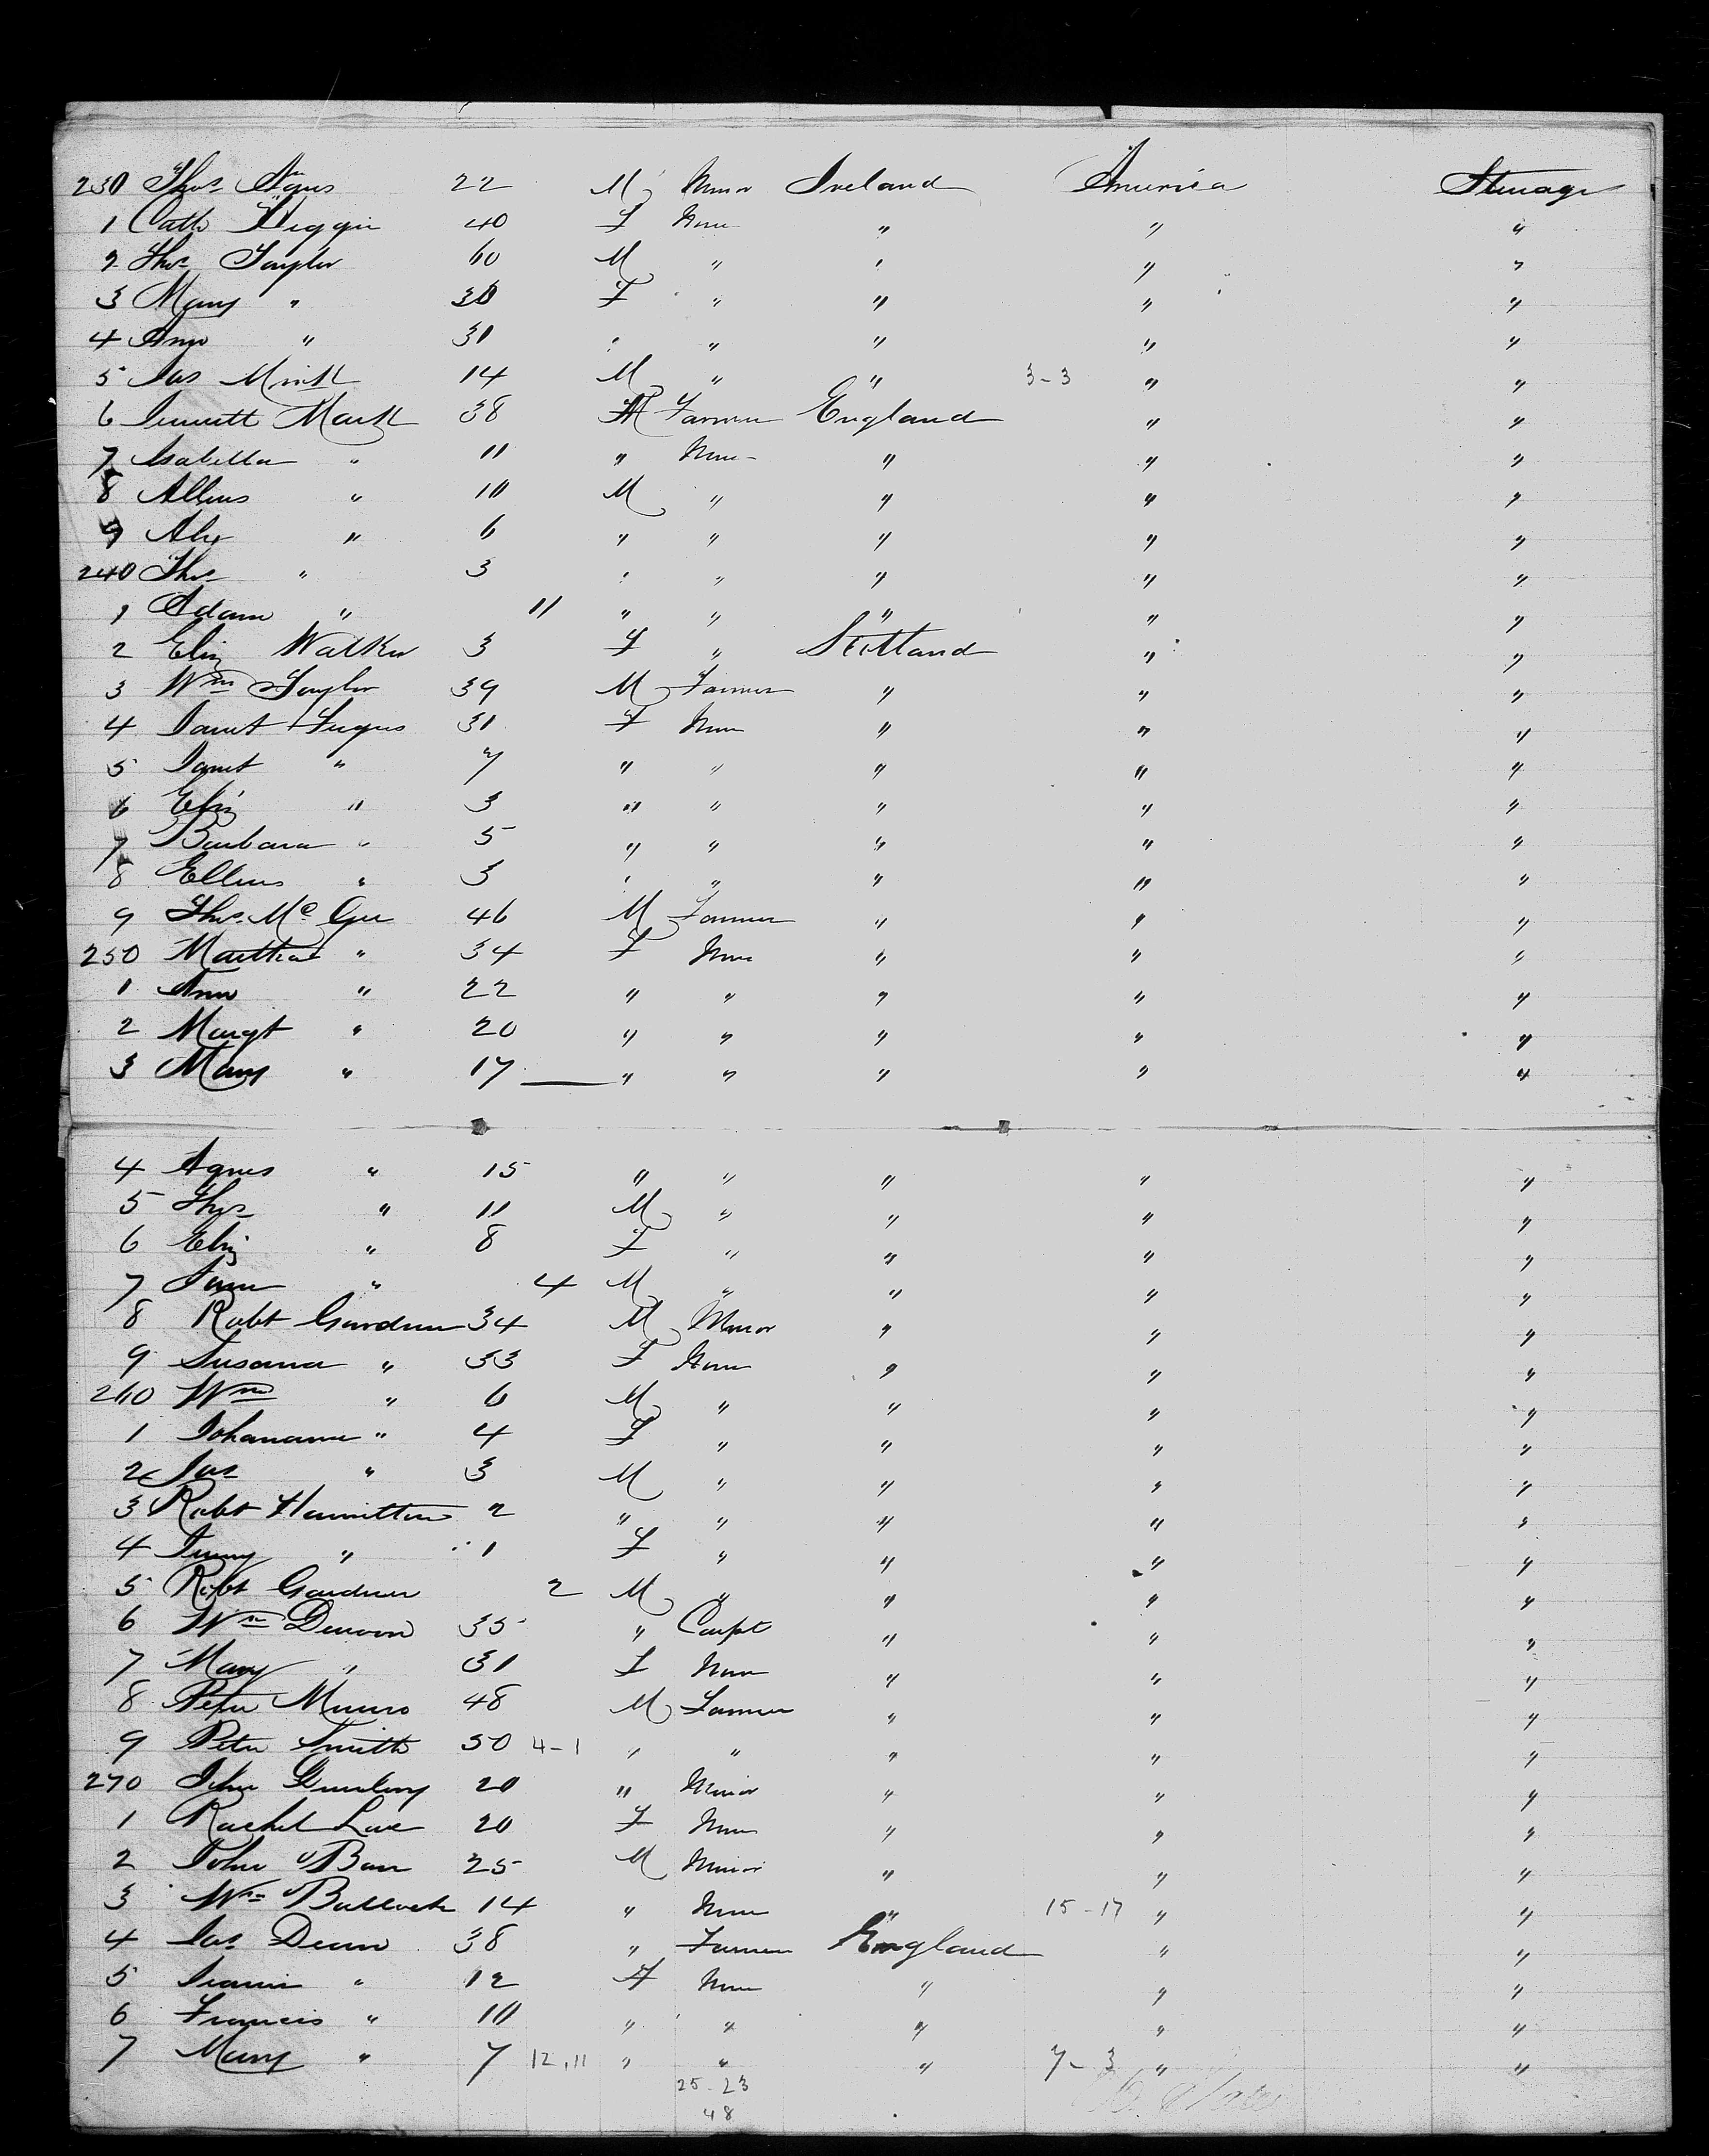 230 Thos Agnes 22 M Minor Ireland America Steerage
1 Cath Higgin 40 F None " " "
2 Thos Taylor 60 M " " " "
3 Mary " 30 F " " " "
4 Ann " 31 " " " " "
5 Jas 14 M " " 3-3 " "
6 Mark 38 F Farmer England " "
7 Isabella " 11 " None " " "
8 Allens " 10 M " " " "
9 Alex " 6 " " " " "
240 Thos " 3 " " " " "
1 Adam " 11 " " " " "
2 Eliz Walker 3 F " Scotland " "
3 Wm Taylor 39 M Farmer " " "
4 Janet Fergus 31 F None " " "
5 Janet " 7 " " " " "
6 Eliz " 3 " " " " "
7 Barbara " 5 " " " " "
8 Ellens " 3 " " " " "
9 Thos McGee 46 M Farmer " " "
250 Martha " 34 F None " " "
1 Ann " 22 " " " " "
2 Margt " 20 " " " " "
3 Mary " 17 " " " " "
4 Agnes " 15 " " " " "
5 Thos " 11 M " " " "
6 Eliz " 8 F " " " "
7 " 4 M " " " "
8 Robt Gardner 34 M Minor " " "
9 Susanna " 33 F None " " "
260 Wm " 6 M " " " "
1 Johananna " 4 F " " " "
2 Jas " 3 M " " " "
3 Robt Hamilton 2 " " " " "
4 Jenny " 1 F " " " "
5 Robt Gardner 2 M " " " "
6 Wm 35 " Carpt " " "
7 Mary " 31 F None " " "
8 Peter Munro 48 M Farmer " " "
9 Peter Smith 50 4-1 " " " " "
270 John 20 " Minor " " "
1 Rachel Love 20 F None " " "
2 John Barr 25 M Minor " " "
3 Wm Bullock 14 " None " 15-17 " "
4 Jas Dean 38 " Farmer England " "
5 " 12 F None " " "
6 Francis " 10 " " " " "
7 Mary " 7 12,11 " " " 7-3 " "
25-23
48